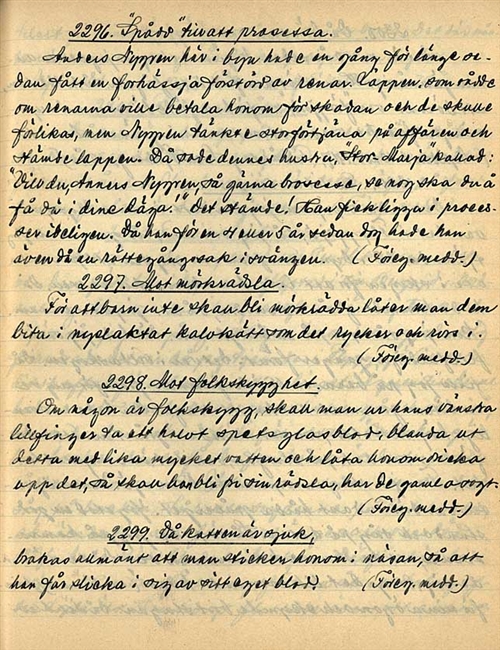 2296. "Spådd" till att prosessa.
Anders Nygren här i byn hade en gång för länge se-
dan fått en forhässja förstörd av renar. Lappen, som rådde
om renarna ville betala honom för skadan och de skulle
förlikas, men Nygren tänkte storförtjäna på affären och
stämde lappen. Då sade dennes hustru, "Stor-Marja" kallad:
"Vill du, Anners Nygren, så gärna prosesse, se nog ska du å
få dä i dine daga!" Det stämde! Han fick ligga i proces-
ser ideligen. Då han för en 4 eller 5 år sedan dog hade han
även då en rättegångssak i svängen. (Föreg. medd.)
2297. Mot mörkrädsla.
För att barn inte skall bli mörkrädda låter man dem
bita i nyslaktat kalvkött som det rycker och rörs i.
(Föreg. medd.)
2298. Mot folkskygghet.
Om någon är folkskygg, skall man ur hans vänstra
lillfinger ta ett halvt spetsglas blod, blanda ut
detta med lika mycket vatten och låta honom dricka
opp det, så skall han bli fri sin rädsla, har de gamla sagt.
(Föreg. medd.)
2299. Då katten är sjuk,
brukas allmänt att man sticker honom i näsan, så att
han får slicka i sig av sitt eget blod. (Föreg. medd.)